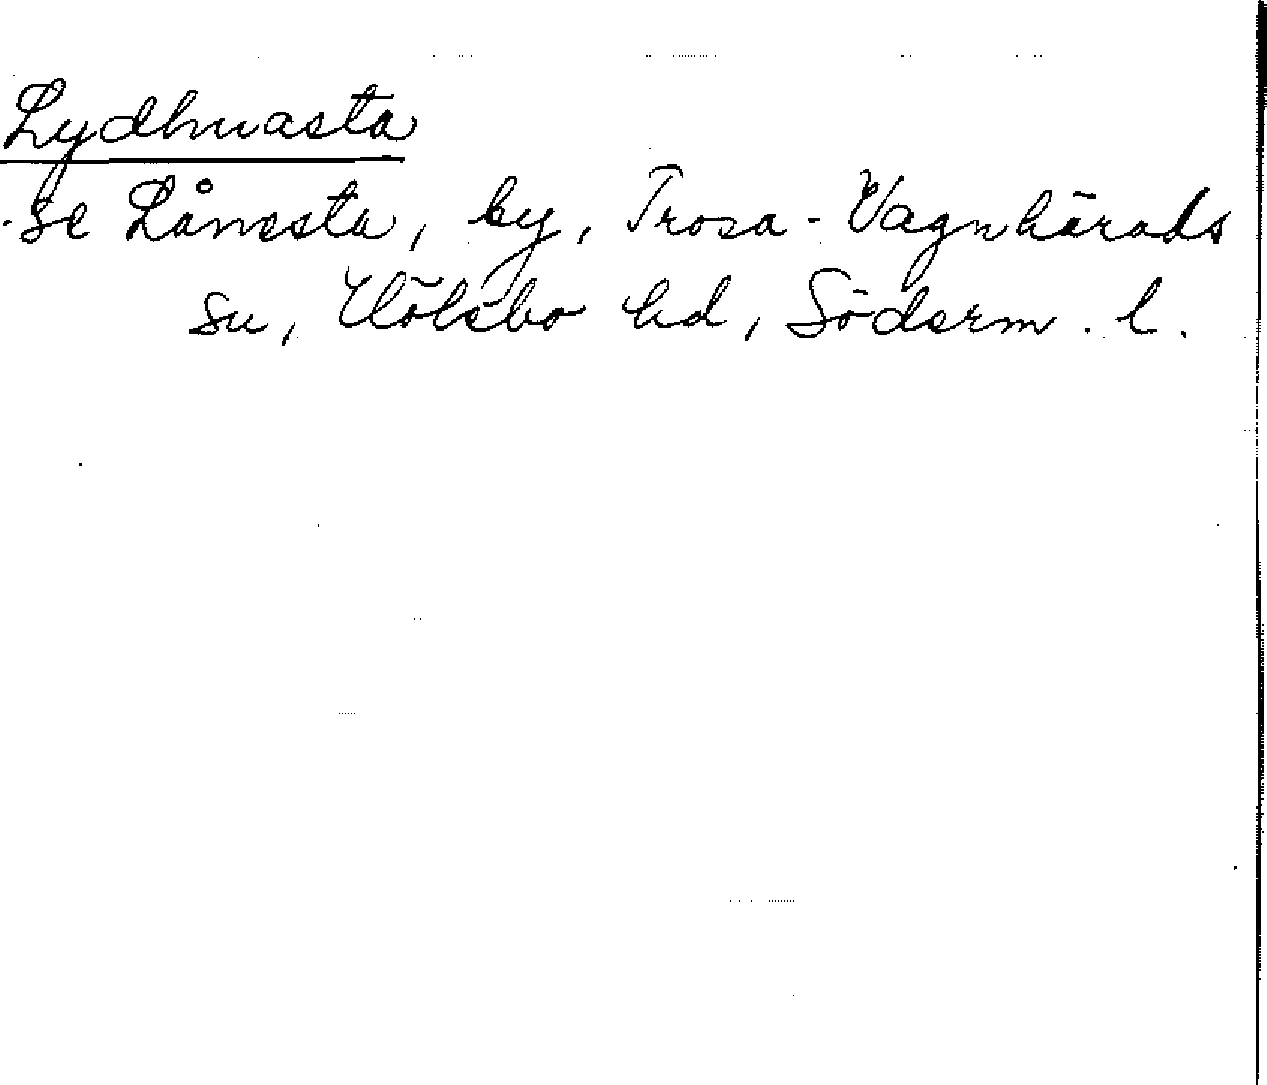 Lydhuasta
se Lånesta, by, Trosa-Vagnhärads
sn, Hölebo hd, Söderm. l.